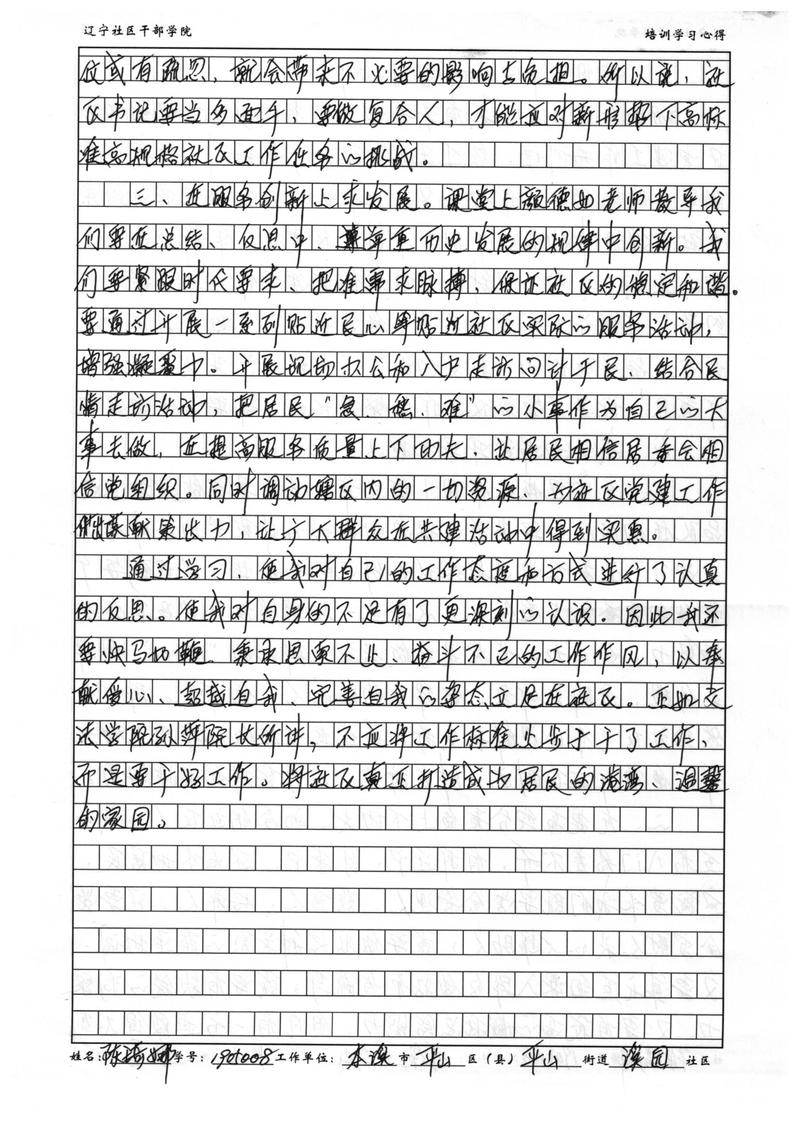 辽宁社区干部学院 培训学习心得
仪或有疏忽，就会带来不必要的影响与负担。所以说，社
区书记要当多面手，要做复合人，才能应对新形势下高标
准高规格社区工作任务的挑战。
三、在服务创新上求发展。课堂上颜德如老师教导我
们要在总结、反思中、尊重历史发展的规律中创新。我
们要紧跟时代要求、把准事求脉搏，保证社区的稳定和谐。
要通过开展一系列贴近民心、贴近社区实际的服务活动，
增强凝聚力。开展现场办公和入户走访问计于民、结合民
情走访活动，把居民“急、愁、难”的小事作为自己的大
事去做，在提高服务质量上下功夫，让居民相信居委会相
信党组织。同时调动辖区内的一切资源，为社区党建工作
献策出力，让广大群众在共建活动中得到实惠。
通过学习，使我对自己的工作态度和方式进行了认真
的反思。使我对自身的不足有了更深刻的认识。因此我还
要快马加鞭、秉承思索不止、奋斗不已的工作作风，以奉
献爱心、超越自我、完善自我的姿态立足在社区。正如文
法学院孙萍院长所讲，不应将工作标准止步于干了工作、
而是要干好工作。将社区真正打造成为居民的港湾、温馨
的家园。
姓名：陈 娜 学号：1901008 工作单位：本溪 市 平山 区（县） 平山 街道 溪园 社区